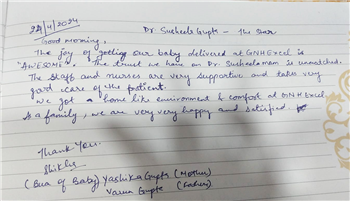 22/4/2024 Dr Susheela Gupta - The Star
Good morning,
The joy of getting our baby delivered at GNH Excel is
"AWESOME". The trust we have on Dr. Susheela mam is unmatched.
The Staff and nurses are very supportive and takes very
good care of the patient.
We got a home like environment & comfort at GNH Excel
as a family, we are very very happy and satisfied
Thank You.
Shikha
(Bua of Baby) Yashika Gupta (Mother)
Varun Gupta (Father)